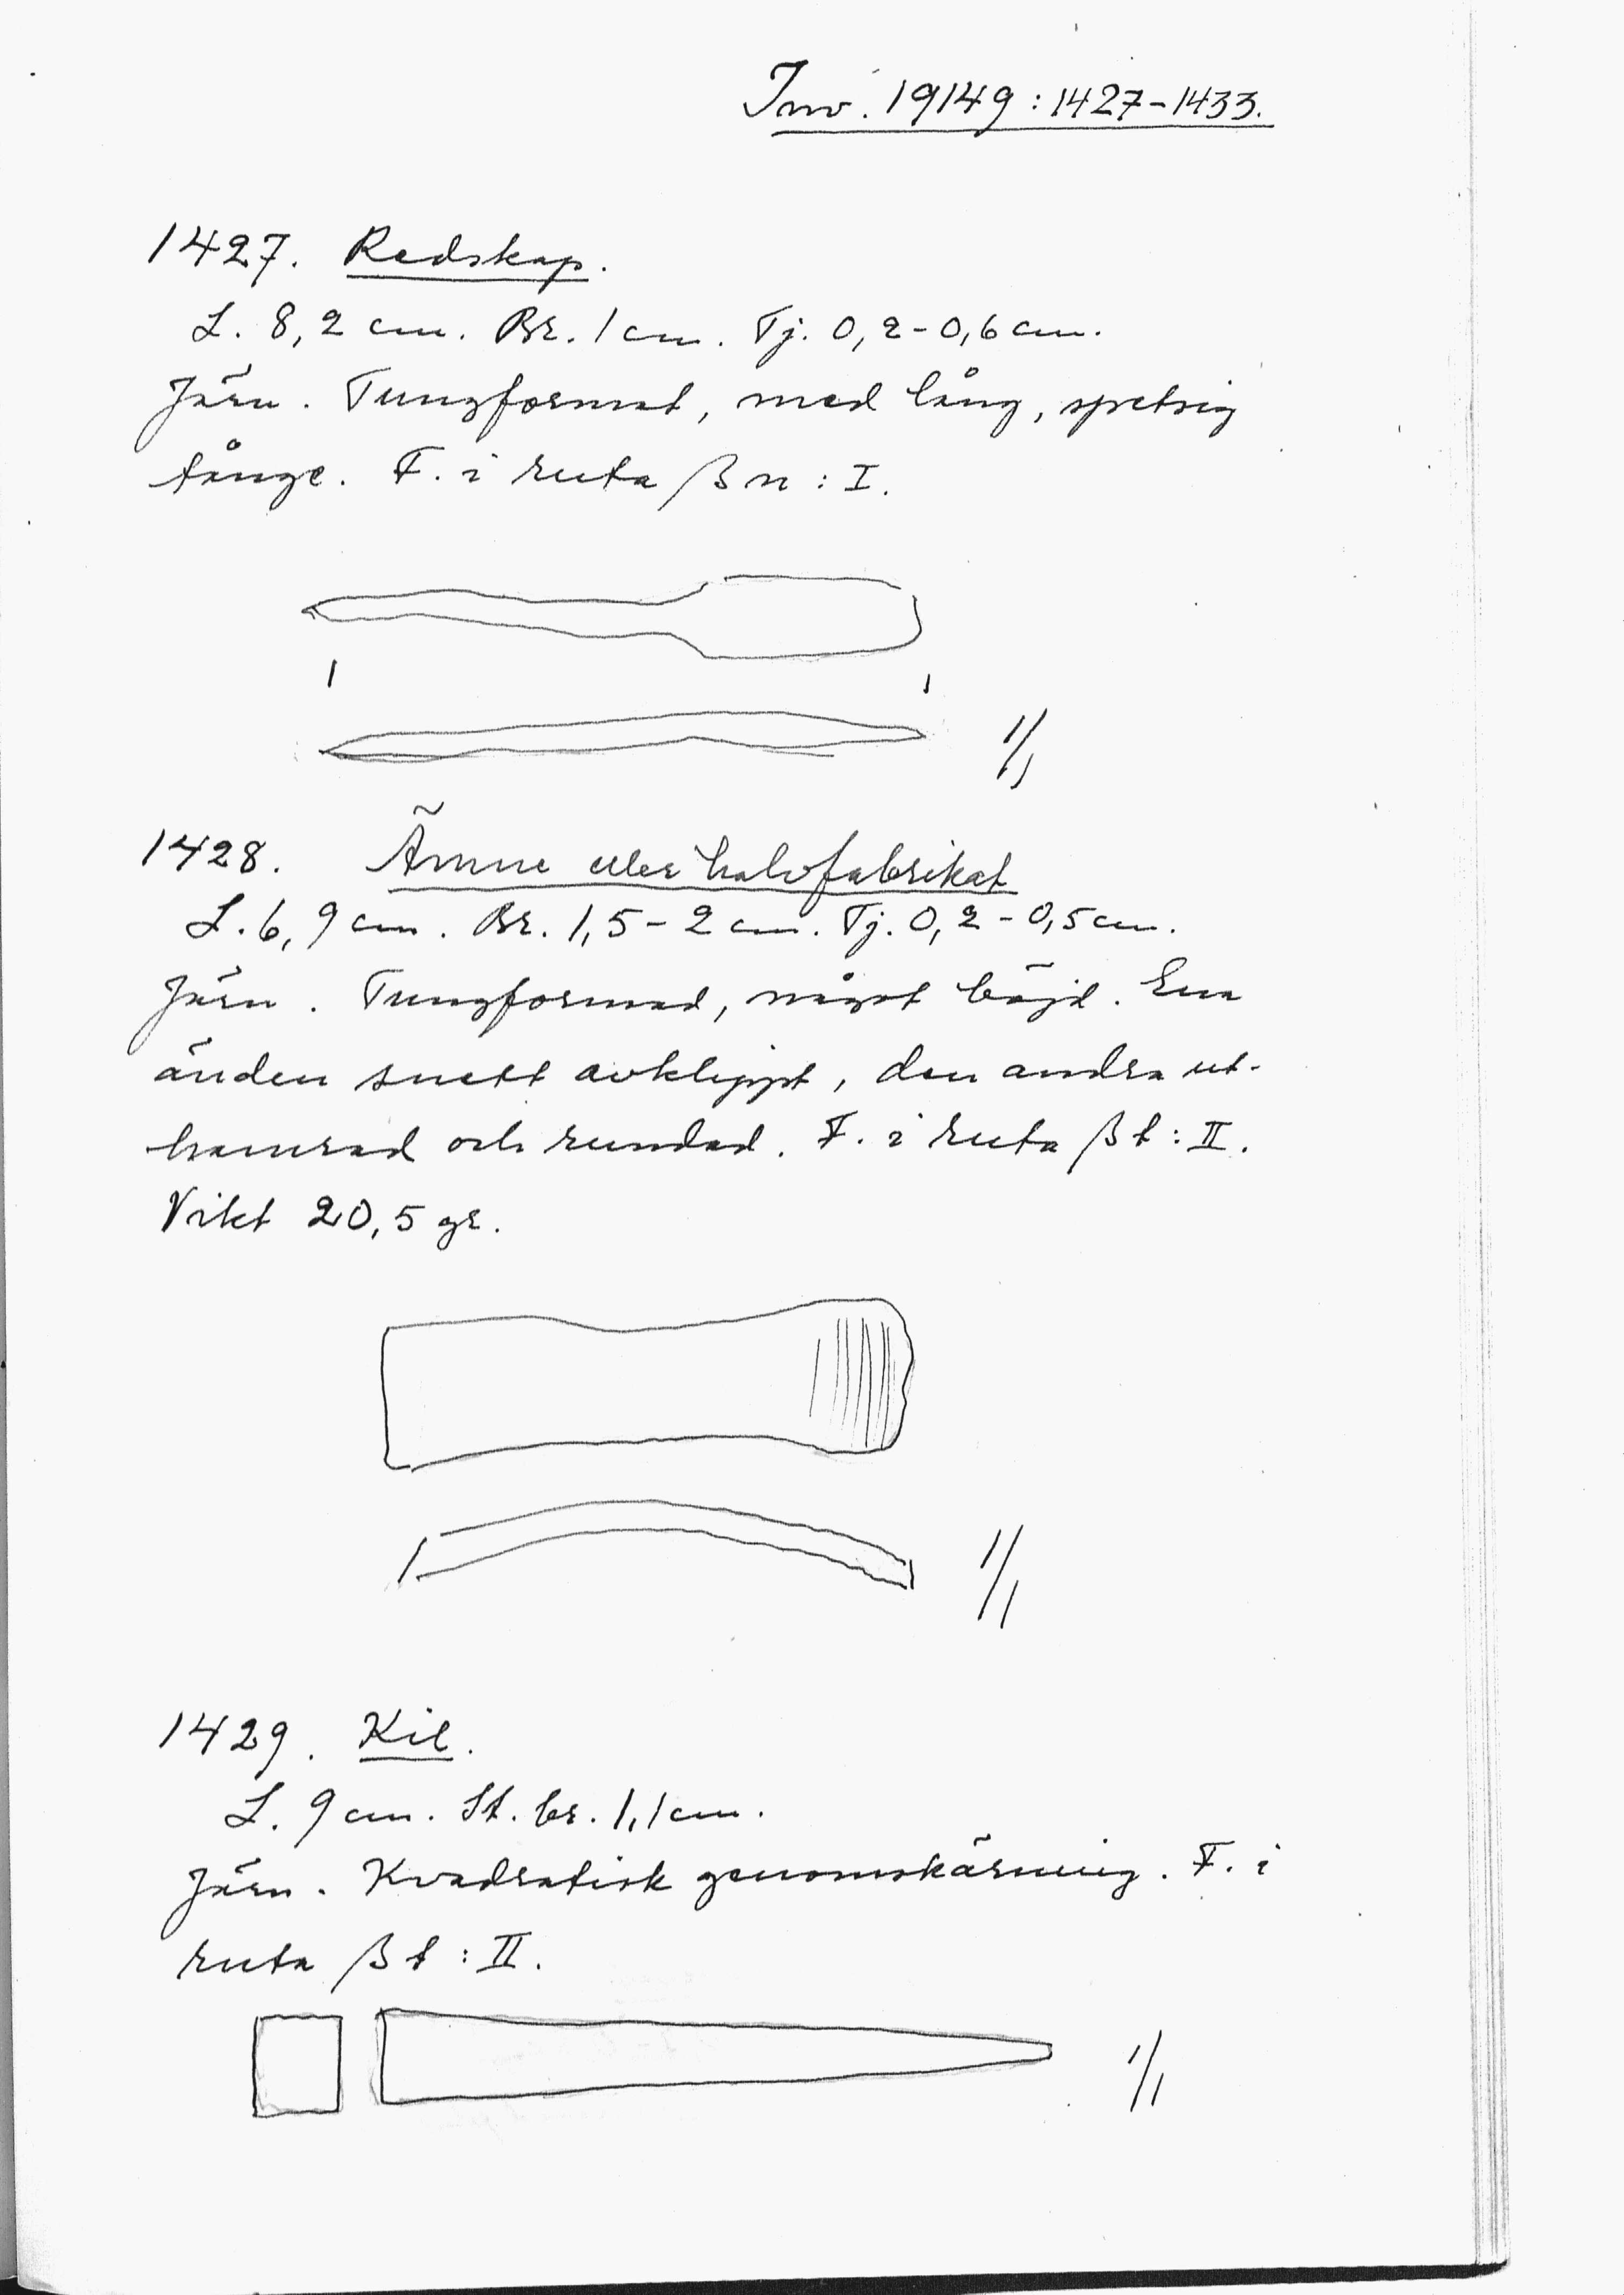 Inv. 19149:1427-1433.
1427. Redskap.
L. 8,2 cm. Br. 1 cm. Tj. 0,2-0,6 cm.
Järn. Tungformat, med lång, spetsig
tånge. F. i ruta βn:I.
1/1
1428. Ämne eller halvfabrikat
L. 6,9 cm. Br. 1,5-2 cm. Tj. 0,2-0,5 cm.
Järn. Tungformad, något böjd. Ena
änden snett avklippt, den andra ut-
hamrad och rundad. F. i ruta βt:II.
Vikt 20,5 gr.
1/1
1429. Kil.
L. 9 cm. St. br. 1,1 cm.
Järn. Kvadratisk genomskärning. F. i
ruta βt:II.
1/1